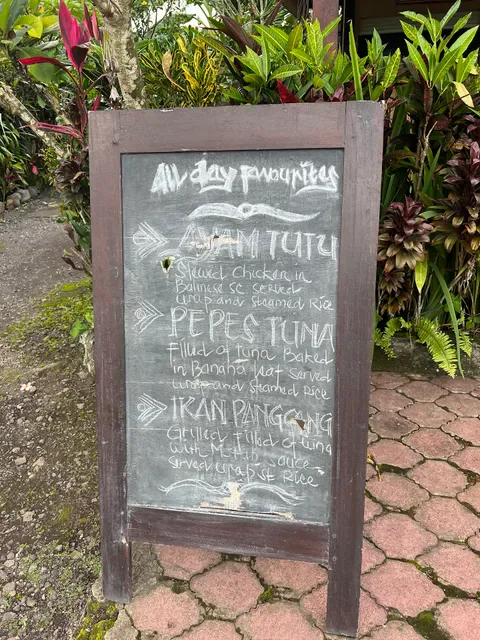 All day favourites
AYAM TUTU
Stewed Chicken in
Balinese sc served
urap and steamed Rice
PEPES TUNA
Filled of tuna Baked
in Banana leaf served
urap and steamed Rice
IKAN PANGGANG
Grilled filled of tuna
with Matah sauce
served urap st Rice